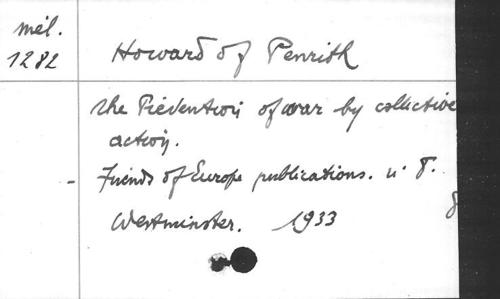 mél.
1282
Howard of Penrith
The Prevention of war by collective
action.
- Friends of Europe publications. n° 8.
Westminster. 1933
8